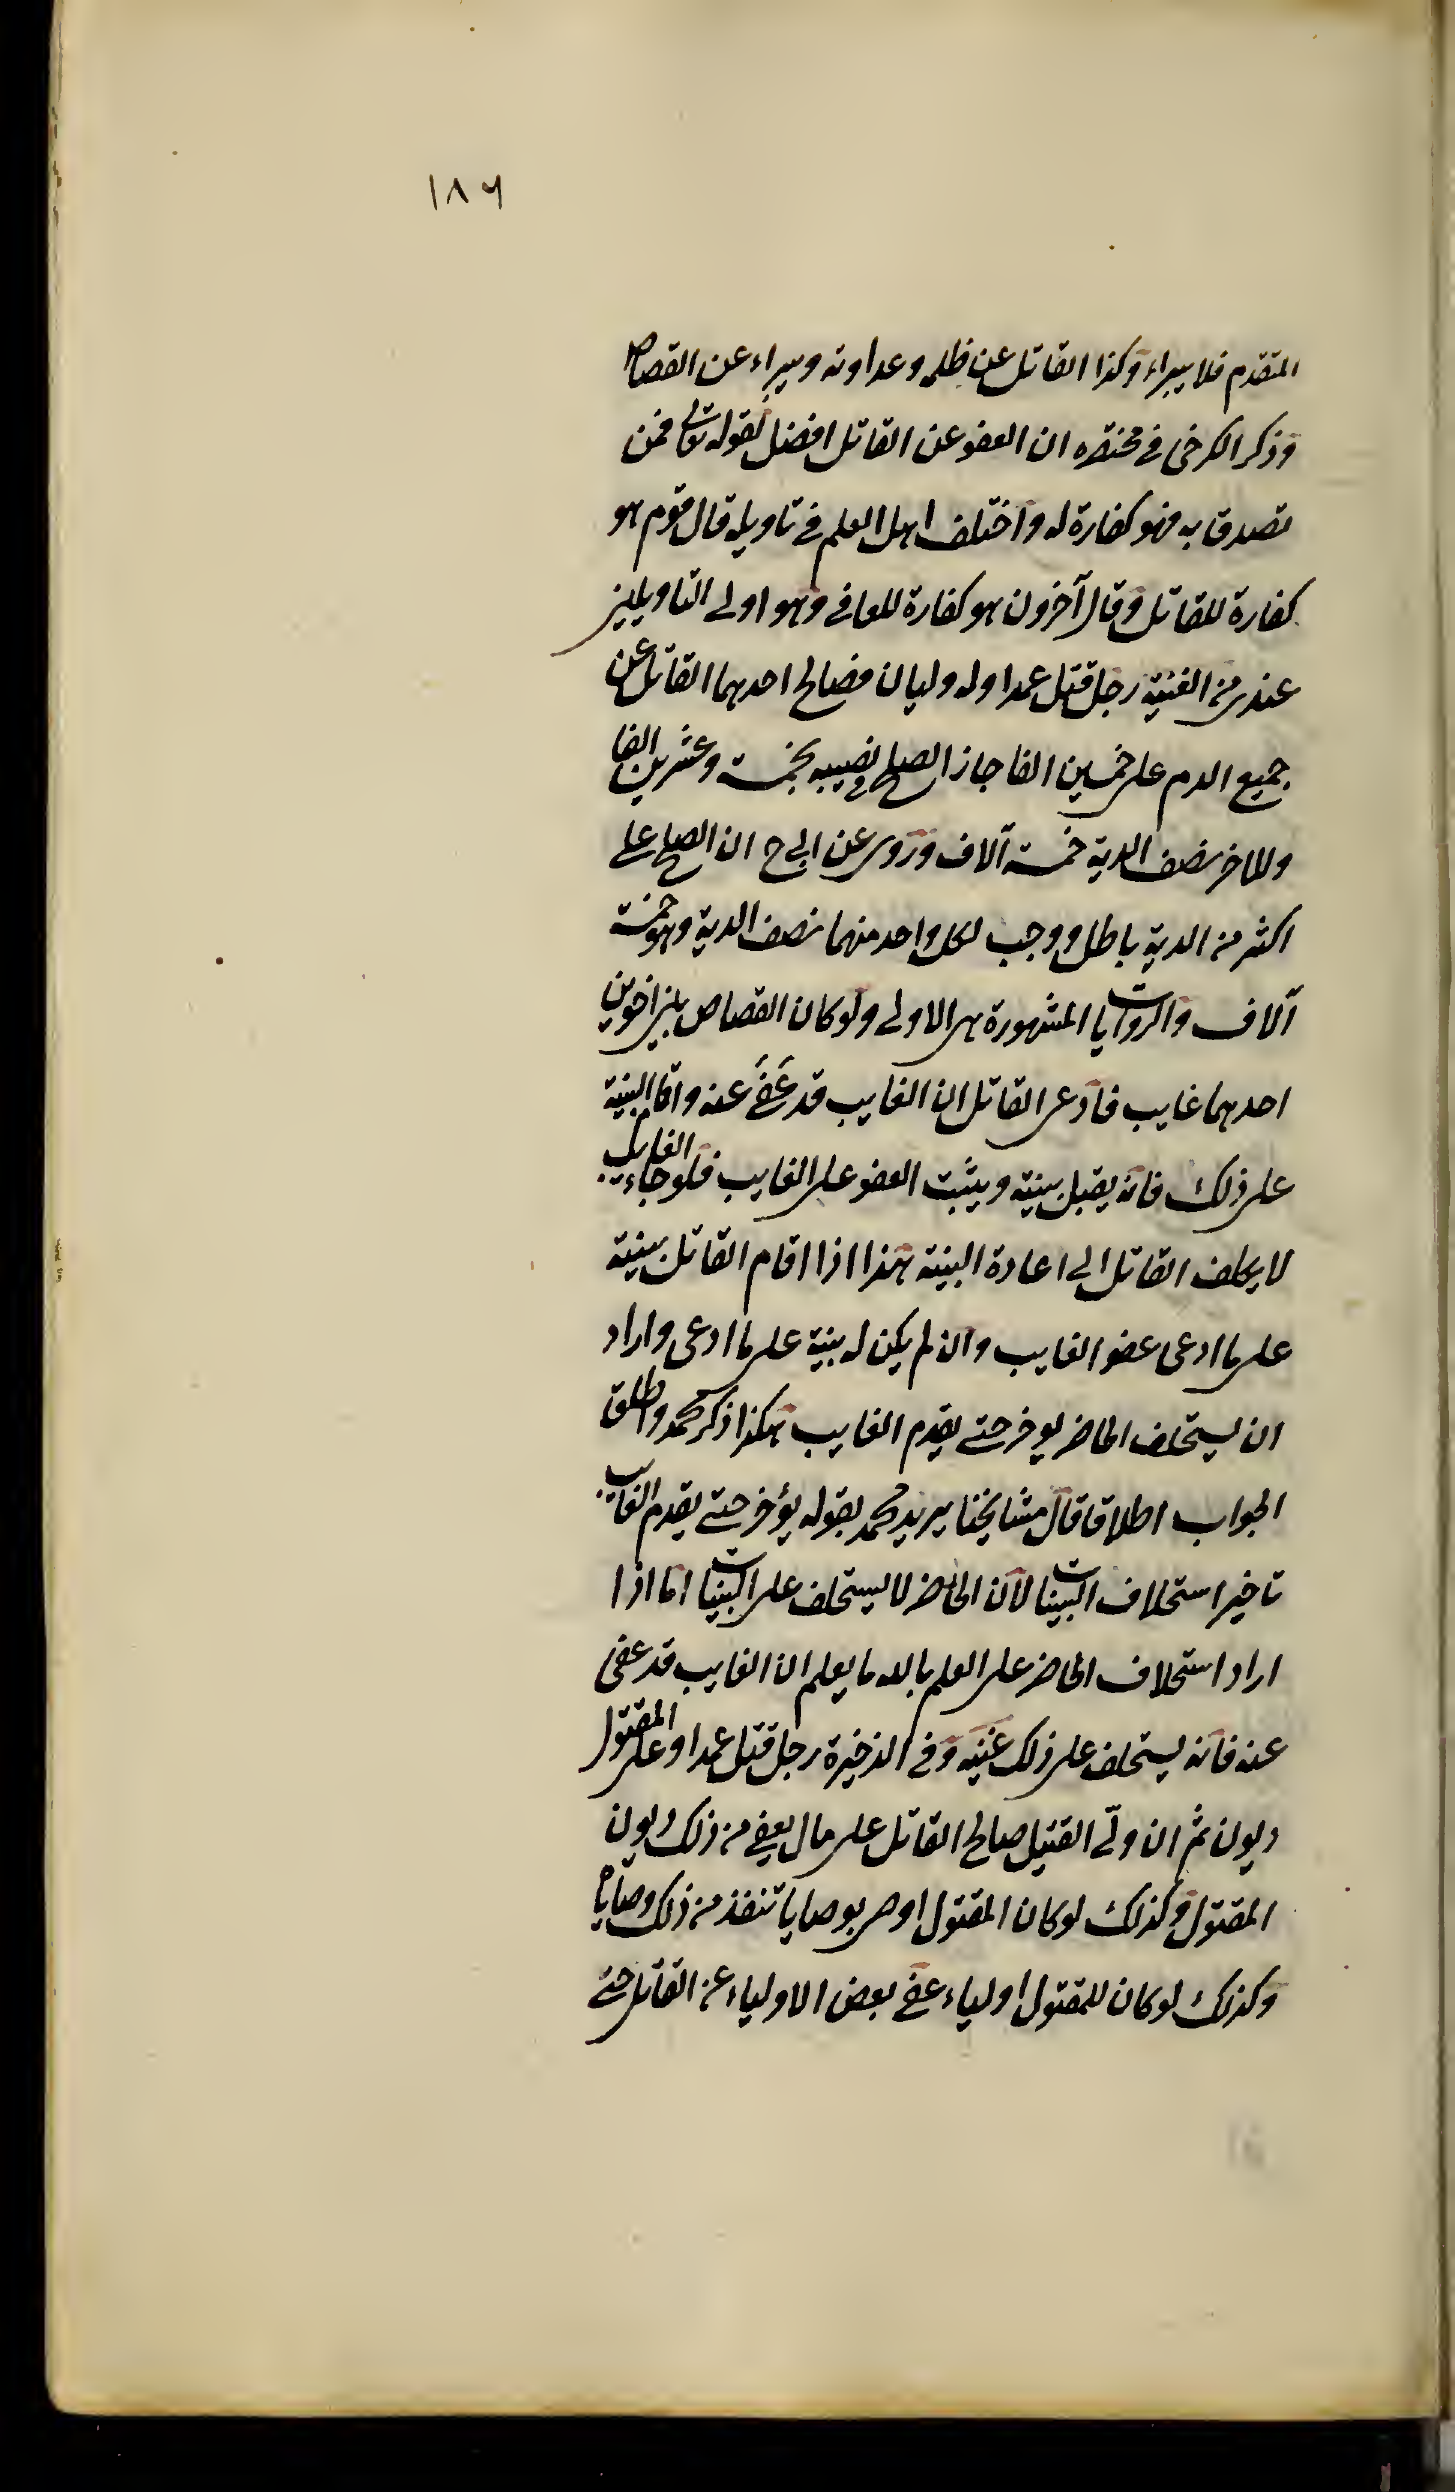 ١٨٦
المتقدم فلا يبراء وكذا القاتل عن ظلمه وعداوته ويبراء عن القصاص
وذكر الكرخى في مختصره ان العفو عن القاتل افضل لقوله تعالى فمن
تصدق به فهو كفارة له واختلف اهل العلم في تاويله قال قوم هو
كفارة للقاتل وقال آخرون هو كفارة للعافي وهو اولى التاويلين
عندى من الغنية رجل قتل عمدا وله وليان فصالح احدهما القاتل عن
جميع الدم على خمسين الفا جاز الصلح في نصيبه بخمسة وعشرين الفا
وللاخر نصف الدية خمسة آلاف وروى عن ابي ح ان الصلح على
اكثر من الدية باطل ووجب لكل واحد منهما نصف الدية وهو خمسة
آلاف والروايات المشهورة هى الاولى ولو كان القصاص بين اخوين
احدهما غايب فادعى القاتل ان الغايب قد عَفَى عنه واقام البينة
على ذلك فانه يقبل بينته ويثبت العفو على الغايب فلو جاء الغايب
لا يكلف القاتل الى اعادة البينة هذا اذا اقام القاتل بينة
على ما ادعى عفو الغايب وان لم يكن له بينة على ما ادعى واراد
ان يستحلف الحاضر يوخر حتى يقدم الغايب هكذا ذكر محمد واطلق
الجواب اطلاقا قال مشايخنا يريد محمد بقوله يؤخر حتى يقدم الغايب
تاخير استحلاف البينات لان الحاضر لا يستحلف على البينات اما اذا
اراد استحلاف الحاضر على العلم بالله ما يعلم ان الغايب قد عفى
عنه فانه يستحلف على ذلك غنيه وفي الذخيرة رجل قتل عمدا وعلى المقتول
ديون ثم ان ولّي القتيل صالح القاتل على مال يعفى من ذلك ديون
المقتول وكذلك لو كان المقتول اوصى بوصايا تنفذ من ذلك وصاياه
وكذلك لو كان للمقتول اولياء عفى بعض الاولياء عن القاتل حتى